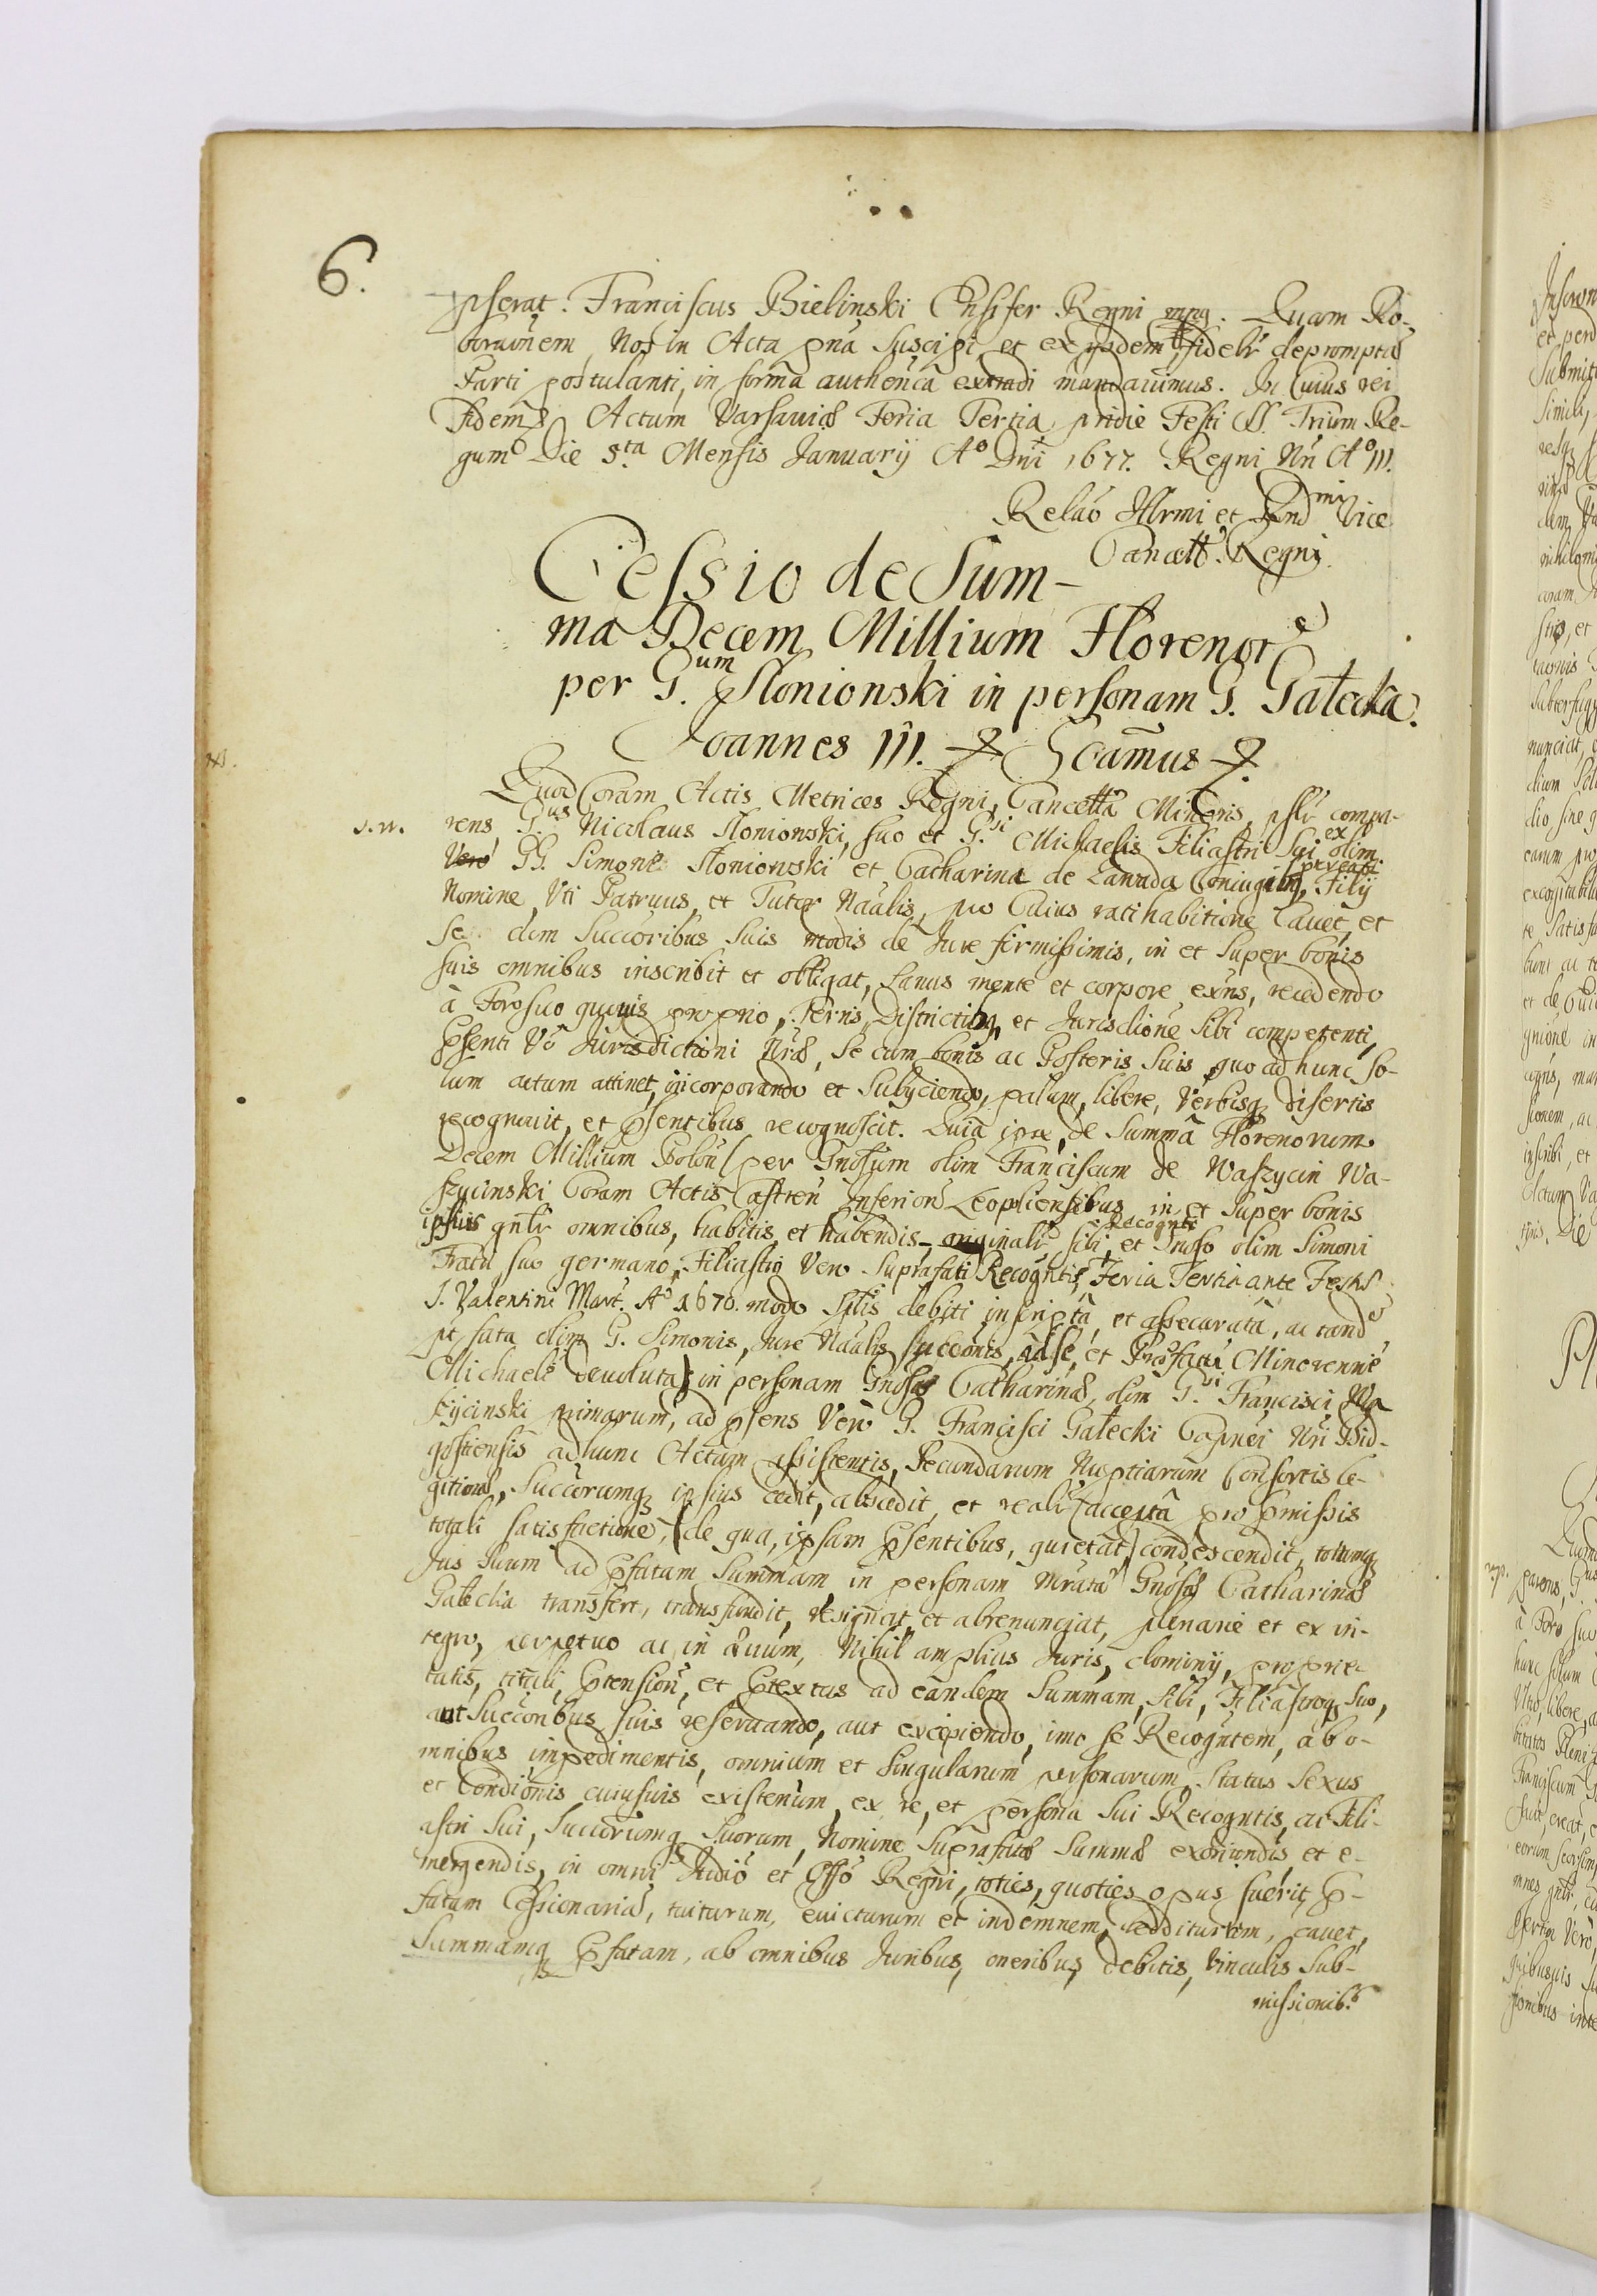 6.
pserat. Franciscus Bielinski Ensifer Regni mpp. Quam Ro-
borãonem Nos in Acta pñã suscipi et ex ijsdem fideĺr depromptã
Parti postulanti, in formã authencã extradi mandavimus. In Cuius rei
fidem Actum Varsaviæ Feria Tertia pridie Festi SS. Trium Re-
gum Die 5.ta Mensis Januarij Aº Dñi 1677. Regni Nrĩ Aº III.
Relaõ Illrmi et Rnd mi Vice
Cancell. Regni.
Cessio de Sum-
ma Decem Millium Florenor
per G.um Słonionski in personam G. Gałecka.
Joannes III. Scãmus
Quod Coram Actis Metrices Regni, Cancellã Minoris, psĺr compa-
rens G.us Nicolaus Słonionski, suo et G.si Michaelis Filiastri sui ex olim
GG. Simone Słonionski et Catharina de Zawada Coniugibq, Filij
Nomine, Uti Patruus, et Tutor Nãalis, pro Cuius ratihabitione Cavet, et
se dem Succoribus suis modis de Jure firmissimis, in et super bonis
suis omnibus inscribit et obligat, sanus mente et corpore exñs, recedendo
à Foro suo quovis proprio, Terris, Districtibq et Jurisdione sibi competenti,
Psenti Vó Jurisdictioni Nræ, se cum bonis ac Posteris suis quo ad hunc so-
lum actum attinet, incorporando et subijciendo, palam, libere, Verbisq disertis
recognovit, et psentibus recognoscit. Quia ipse, de Summâ Florenorum
Decem Millium Polon (per Gnosum olim Franciscum de Waszycin Wa-
szycinski Coram Actis Castren Inferiorõ Leopoliensibus in et super bonis
ipsius gnĺr omnibus, habitis et habendis originaĺr sibi Recognti, et Gnoso olim Simoni
Fratri suo germano, Filiastrij Vero suprafati Recogntis, Feria Tertia ante Festũ
S. Valentini Mart. Aº 1670. modo sptis debiti inscriptã, et assecuratâ, ac tandẽ
pt fata olim G. Simonis, Jure Nãalis Succonis, ad se, et Præfatũ Minorennẽ
Michaelẽ devolutâ) in personam Gnosæ Catharinæ, olim G.si Francisci Wa
szycinski primarum, ad psens Vero G. Francisci Gałecki Capnei Nri Bid-
gostiensis ad hunc Actum assistentis, Secundarum Nuptiarum Consortis le-
gitimæ, Succorumq ipsius cedit, abscedit, et reaĺr (acceptã pro pmissis
totali satisfactione, de qua, ipsam psentibus, quietat) condescendit, totumq
Jus suum ad pfatam Summam in personam mratæ Gnosæ Catharinæ
Gałecka transfert, transfundit, resignat, et abrenunciat, plenarie et ex in-
tegro, perpetuo ac in ævum, Nihil amplius Juris, dominij, proprie-
tatis, tituli, ptensionũ, et ptextus ad eandem Summam, sibi, Filiastroq suo,
aut Succoribus suis reservando, aut excipiendo, imo se Recogntem, ab o-
mnibus impedimentis, omnium et singularum personarum, status sexus
et Condionis cuiusvis existenũm, ex re, et persona sui Recogntis, ac Fili-
astri sui, Succorumq suorum, Nomine suprafatæ Summæ exoriundis, et e-
mergendis, in omni Judiõ et Offõ Regni, toties, quoties opus fuerit, p-
fatam Cessionariã, tuiturum, evicturum et indemnem, redditurum, cavet,
Summamq pfatam, ab omnibus Juribus, oneribus, debitis, Vinculis sub-
missionib.